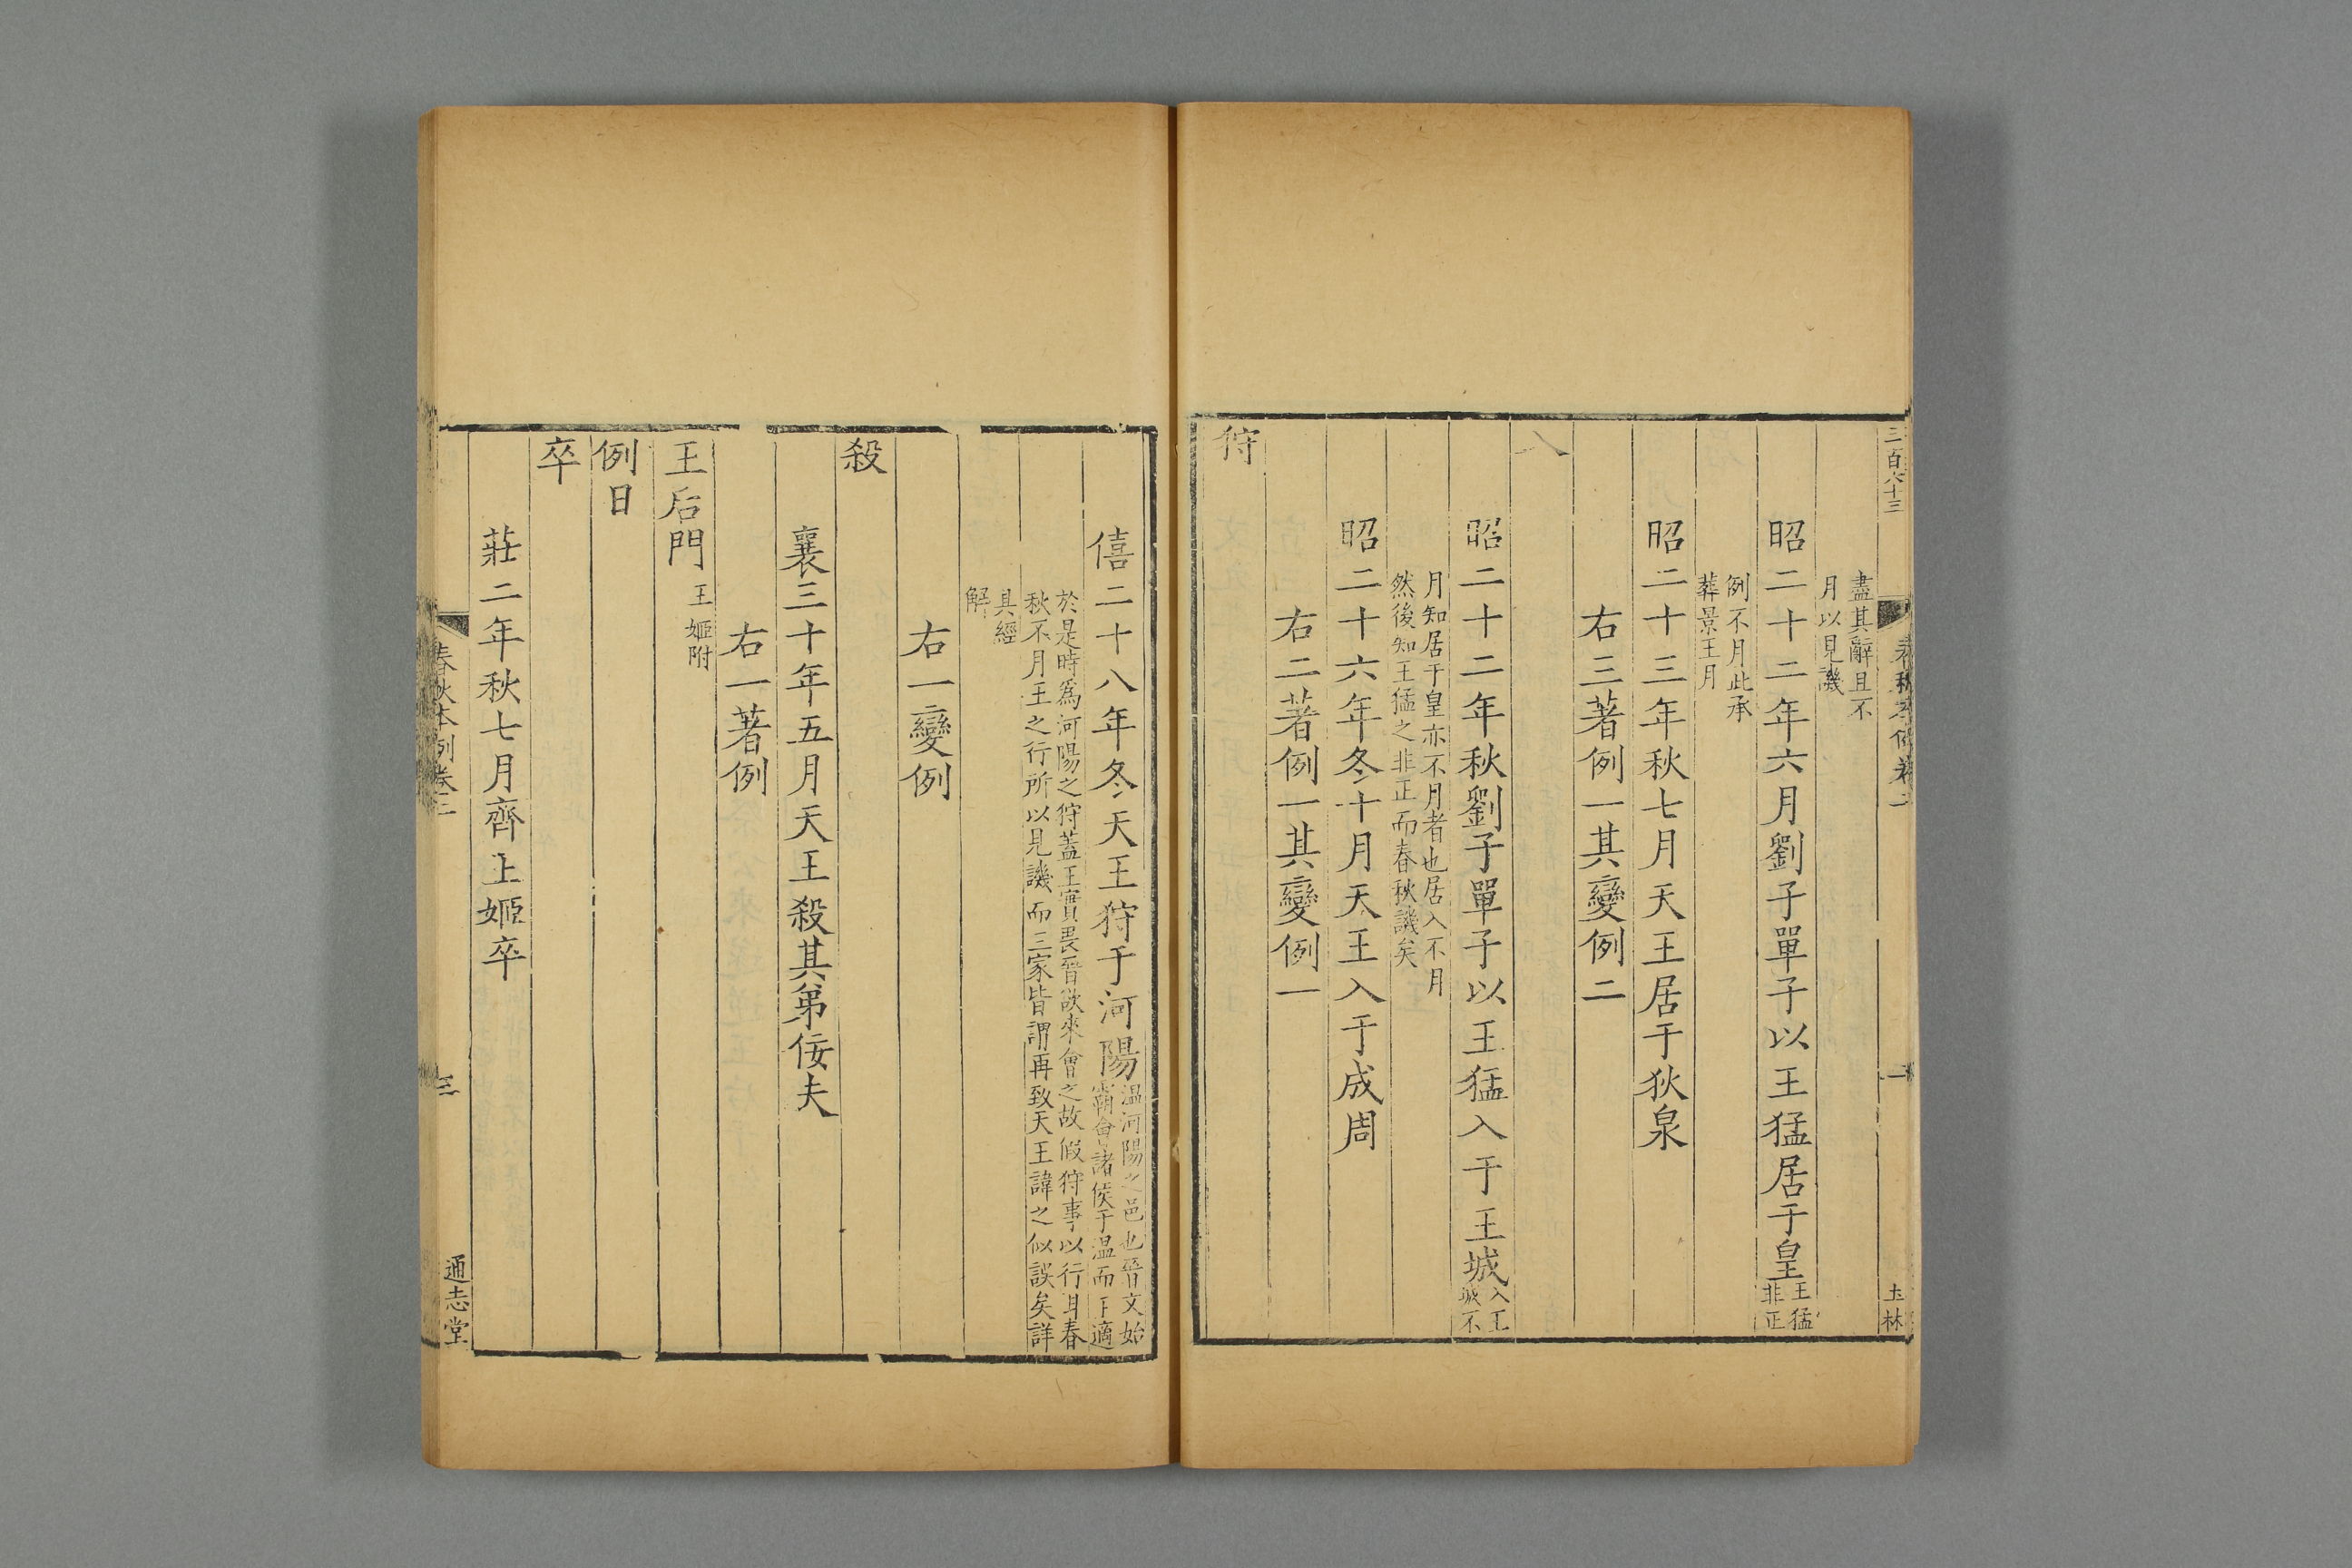 三百六十三
春秋本例卷二
二
玉林
盡其辭且不
月以見譏
昭二十二年六月劉子單子以王猛居于皇王猛
非正
例不月此承
葬景王月
昭二十三年秋七月天王居于狄泉
右三著例一其變例二
入
昭二十二年秋劉子單子以王猛入于王城入王
城不
月知居于皇亦不月者也居入不月
然後知王猛之非正而春秋譏矣
昭二十六年冬十月天王入于成周
右二著例一其變例一
狩
僖二十八年冬天王狩于河陽温河陽之邑也晉文始
霸會諸侯于温而王適
於是時爲河陽之狩蓋王實畏晉欲來會之故假狩事以行耳春
秋不月王之行所以見譏而三家皆謂再致天王諱之似誤矣詳
具經
解
右一變例
殺
襄三十年五月天王殺其弟佞夫
右一著例
王后門王姬附
例日
卒
莊二年秋七月齊王姬卒
春秋本例卷二
三
通志堂